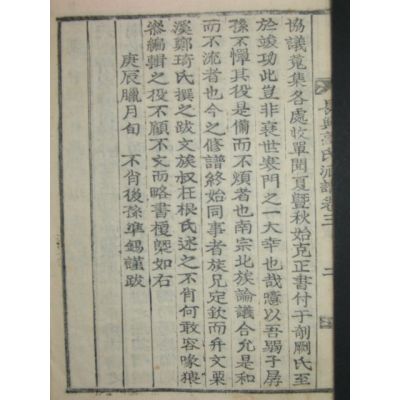 長興高氏派譜卷三 二
協議蒐集各處收單閱夏曁秋始克正書付于剞劂氏至
於竣功此豈非衰世寒門之一大幸也哉噫以吾弱子孱
孫不憚其役是備而不煩者也南宗北族論議合允是和
而不流者也今之修譜終始同事者族兄定欽而弁文栗
溪鄭琦氏撰之跋文族叔枉根氏述之不肖何敢容喙猥
忝編輯之役不顧不文而略書梗槩如右
庚辰臘月旬 不肖後孫準錫謹跋